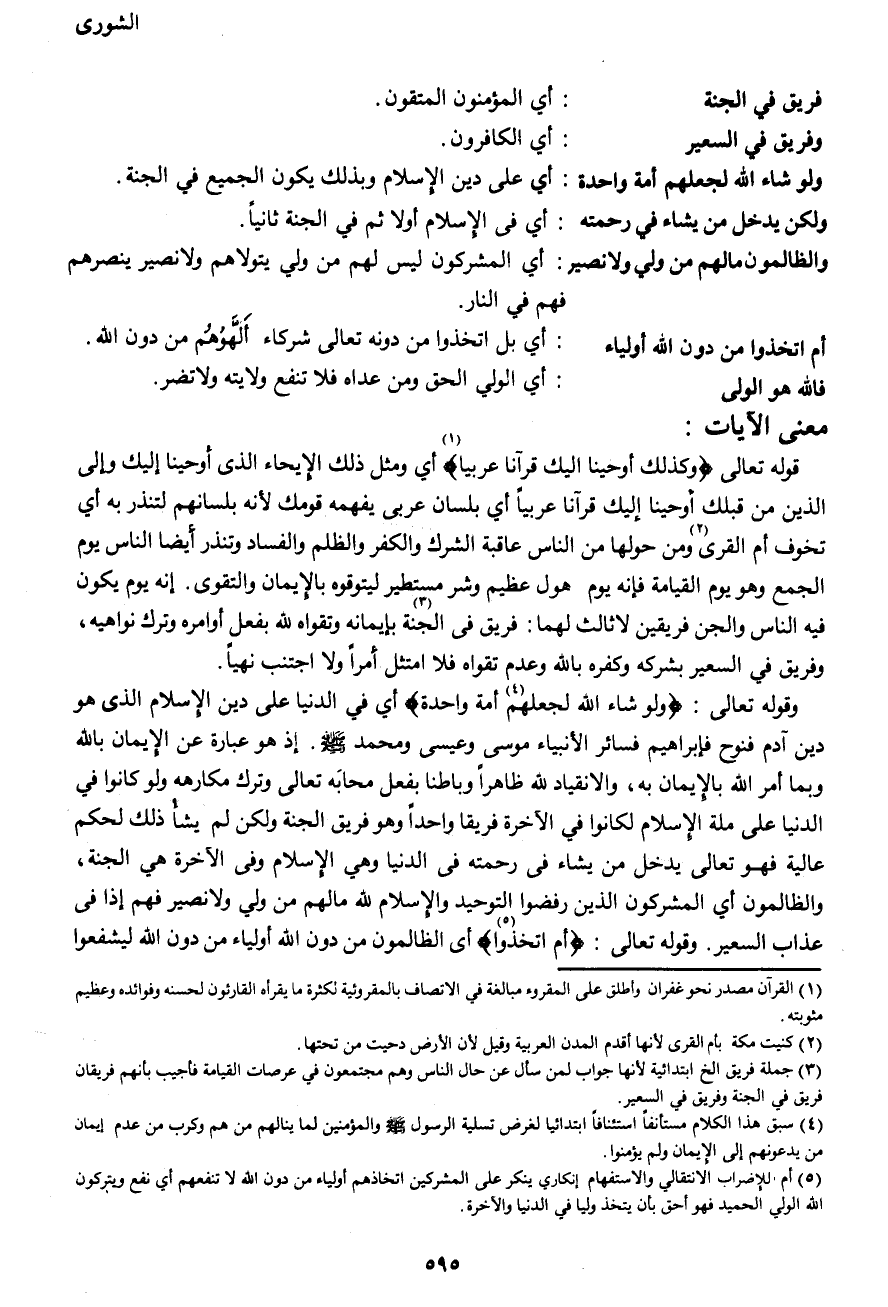 الشورى
فريق في الجنة : أي المؤمنون المتقون.
وفريق في السعير : أي الكافرون.
ولو شاء الله لجعلهم أمة واحدة : أي على دين الإسلام وبذلك يكون الجميع في الجنة.
ولكن يدخل من يشاء في رحمته : أي فى الإسلام أولا ثم في الجنة ثانياً.
والظالمون مالهم من ولي ولانصير : أي المشركون ليس لهم من ولي يتولاهم ولانصير ينصرهم
فهم في النار.
أم اتخذوا من دون الله أولياء : أي بل اتخذوا من دونه تعالى شركاء أَلَّهُوُهُم من دون الله.
فالله هو الولى : أي الولي الحق ومن عداه فلا تنفع ولايته ولاتضر.
معنى الآيات :
قوله تعالى ﴿وكذلك أوحينا اليك قرآنا عربيا﴾(١) أي ومثل ذلك الإيحاء الذى أوحينا إليك وإلى
الذين من قبلك أوحينا إليك قرآنا عربياً أي بلسان عربى يفهمه قومك لأنه بلسانهم لتنذر به أي
تخوف أم القرى(٢) ومن حولها من الناس عاقبة الشرك والكفر والظلم والفساد وتنذر أيضا الناس يوم
الجمع وهو يوم القيامة فإنه يوم هول عظيم وشر مستطير ليتوقوه بالإيمان والتقوى. إنه يوم يكون
فيه الناس والجن فريقين لاثالث لهما: فريق فى الجنة(٣) بإيمانه وتقواه لله بفعل أوامره وترك نواهيه،
وفريق في السعير بشركه وكفره بالله وعدم تقواه فلا امتثل أمراً ولا اجتنب نهياً.
وقوله تعالى : ﴿ولو شاء الله لجعلهم(٤) أمة واحدة﴾ أي في الدنيا على دين الإسلام الذى هو
دين آدم فنوح فإبراهيم فسائر الأنبياء موسى وعيسى ومحمد ﷺ. إذ هو عبارة عن الإيمان بالله
وبما أمر الله بالإيمان به، والانقياد لله ظاهراً وباطنا بفعل محابَه تعالى وترك مكارهه ولو كانوا في
الدنيا على ملة الإسلام لكانوا في الآخرة فريقا واحداً وهو فريق الجنة ولكن لم يشأ ذلك لحكم
عالية فهو تعالى يدخل من يشاء فى رحمته فى الدنيا وهي الإسلام وفى الآخرة هي الجنة،
والظالمون أي المشركون الذين رفضوا التوحيد والإسلام لله مالهم من ولي ولانصير فهم إذا فى
عذاب السعير. وقوله تعالى : ﴿أم اتخذوا(٥)﴾ أى الظالمون من دون الله أولياء من دون الله ليشفعوا
(١) القرآن مصدر نحو غفران وأطلق على المقروء مبالغة في الاتصاف بالمقروئية لكثرة ما يقرأه القارئون لحسنه وفوائده وعظيم
مثوبته.
(٢) كنيت مكة بأم القرى لأنها أقدم المدن العربية وقيل لأن الأرض دحيت من تحتها.
(٣) جملة فريق الخ ابتدائية لأنها جواب لمن سأل عن حال الناس وهم مجتمعون في عرصات القيامة فأجيب بأنهم فريقان
فريق في الجنة وفريق في السعير.
(٤) سبق هذا الكلام مستأنفاً استئنافاً ابتدائيا لغرض تسلية الرسول ﷺ والمؤمنين لما ينالهم من هم وكرب من عدم إيمان
من يدعونهم إلى الإيمان ولم يؤمنوا.
(٥) أم للإضراب الانتقالي والاستفهام إنكاري ينكر على المشركين اتخاذهم أولياء من دون الله لا تنفعهم أي نفع ويتركون
الله الولي الحميد فهو أحق بأن يتخذ وليا في الدنيا والآخرة.
٥٩٥